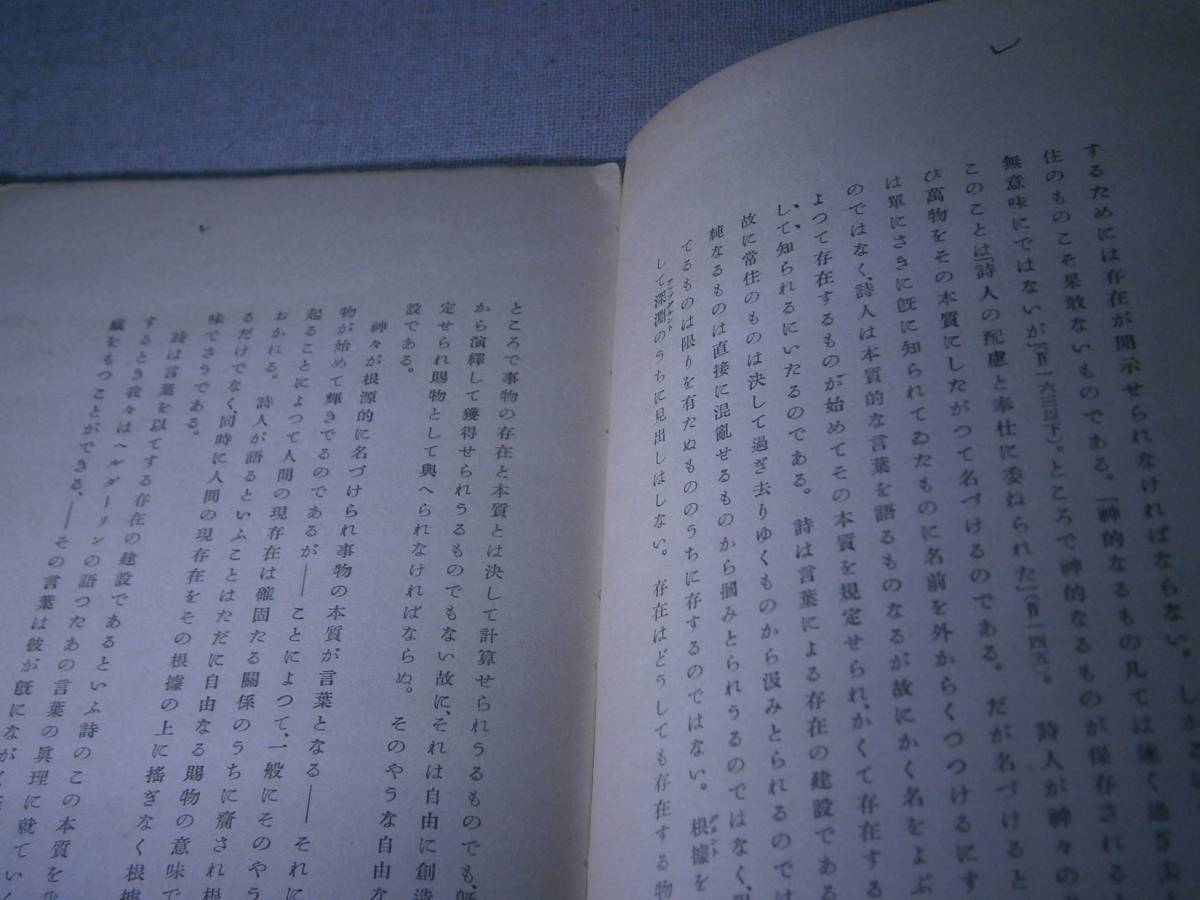 するためには存在が開示せられなければならない。しかるに
住のものこそ果敢ないものである。「神的なるもの凡ては速く過ぎ去
無意味にではないが」(Ⅳ一六三以下)。ところで神的なるものが保存される
このことは「詩人の配慮と奉仕に委ねられた」(Ⅳ一四五)。詩人が神々の
び萬物をその本質にしたがつて名づけるのである。だが名づけると
は單にさきに旣に知られてゐたものに名前を外からくつつけるにす
のではなく、詩人は本質的な言葉を語るものなるが故にかく名をよぶ
よつて存在するものが始めてその本質を規定せられ、かくて存在する
して、知られるにいたるのである。詩は言葉による存在の建設である
故に常住のものは決して過ぎ去りゆくものから汲みとられるのでは
純なるものは直接に混亂せるものから摑みとられうるのではなく、
てるものは限りを有たぬもののうちに存するのではない。根據を
グルント
して深淵のうちに見出しはしない。存在はどうしても存在する物
アップグルント
ところで事物の存在と本質とは決して計算せられうるものでも、旣
から演繹して獲得せられうるものでもない故に、それは自由に創造
定せられ賜物として與へられなければならぬ。そのやうな自由な
設である。
神々が根源的に名づけられ事物の本質が言葉となる――それに
物が始めて輝きでるのであるが――ことによつて、一般にそのやう
起ることによつて人間の現存在は確固たる關係のうちに齎され根
おかれる。詩人が語るといふことはただに自由なる賜物の意味で
るだけでなく、同時に人間の現存在をその根據の上に搖ぎなく根據
味でさうである。
詩は言葉を以てする存在の建設であるといふ詩のこの本質を
するとき我々はヘルダーリンの語つたあの言葉の眞理に就てい
感をもつことができる、――その言葉は彼が旣にながく